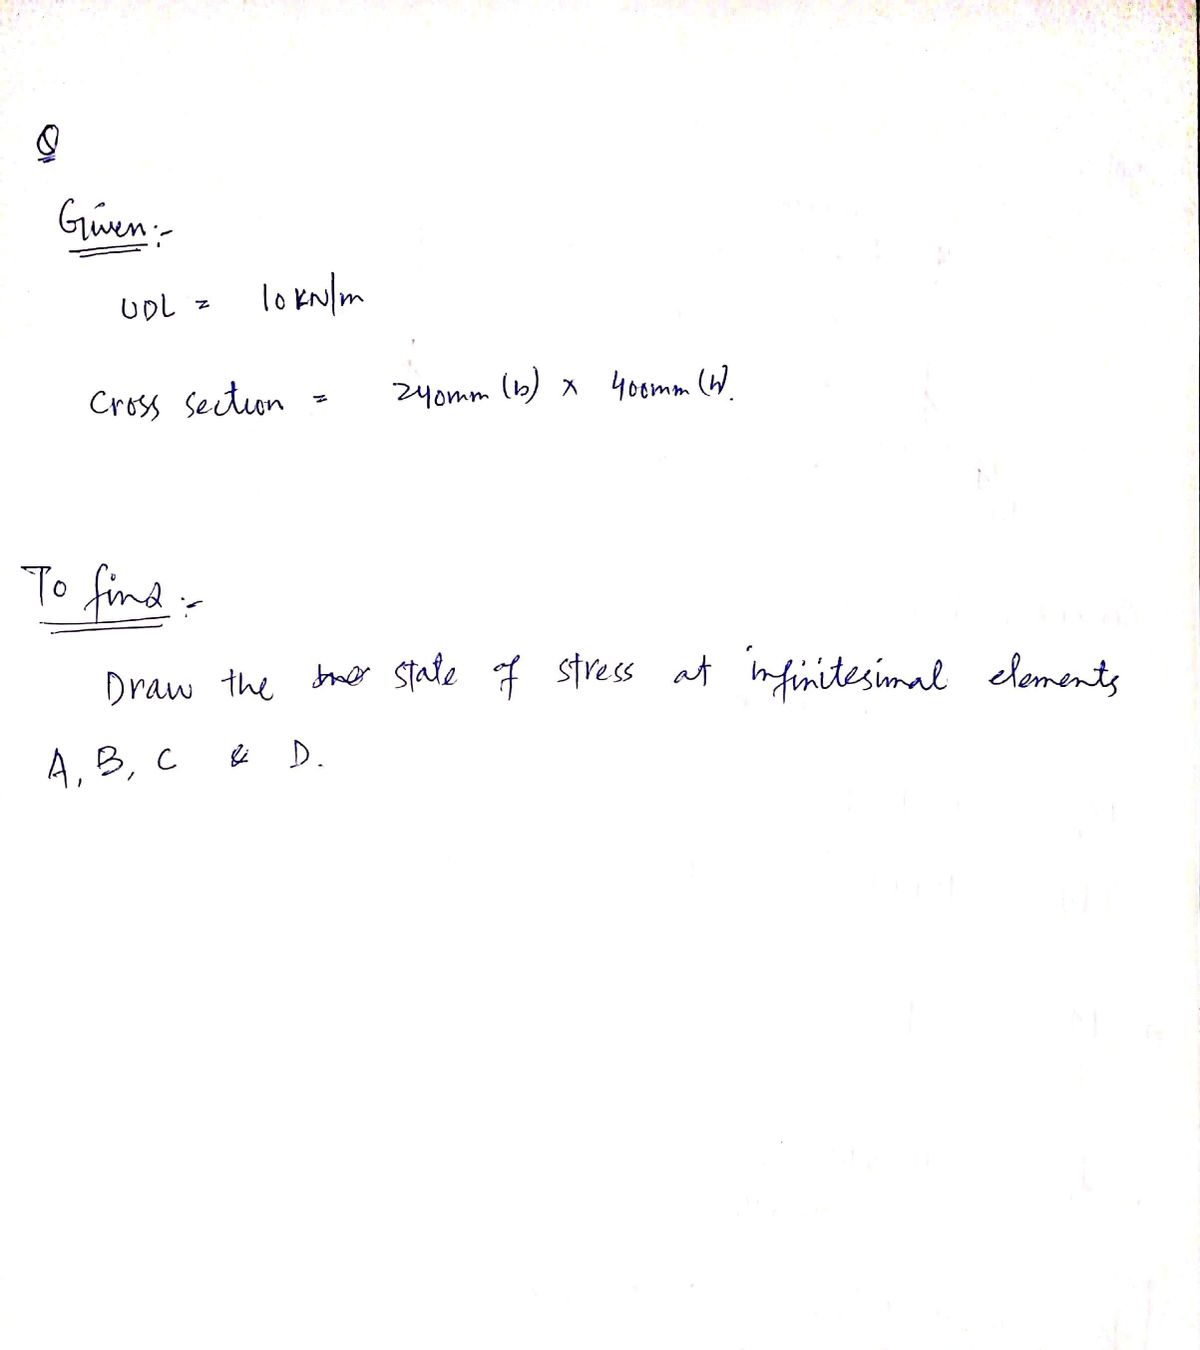 Q
Given:-
UDL = 10 KN/m
Cross section = 240mm (b) x 400mm (h).
To find :-
Draw the state of stress at infinitesimal elements
A, B, C & D.